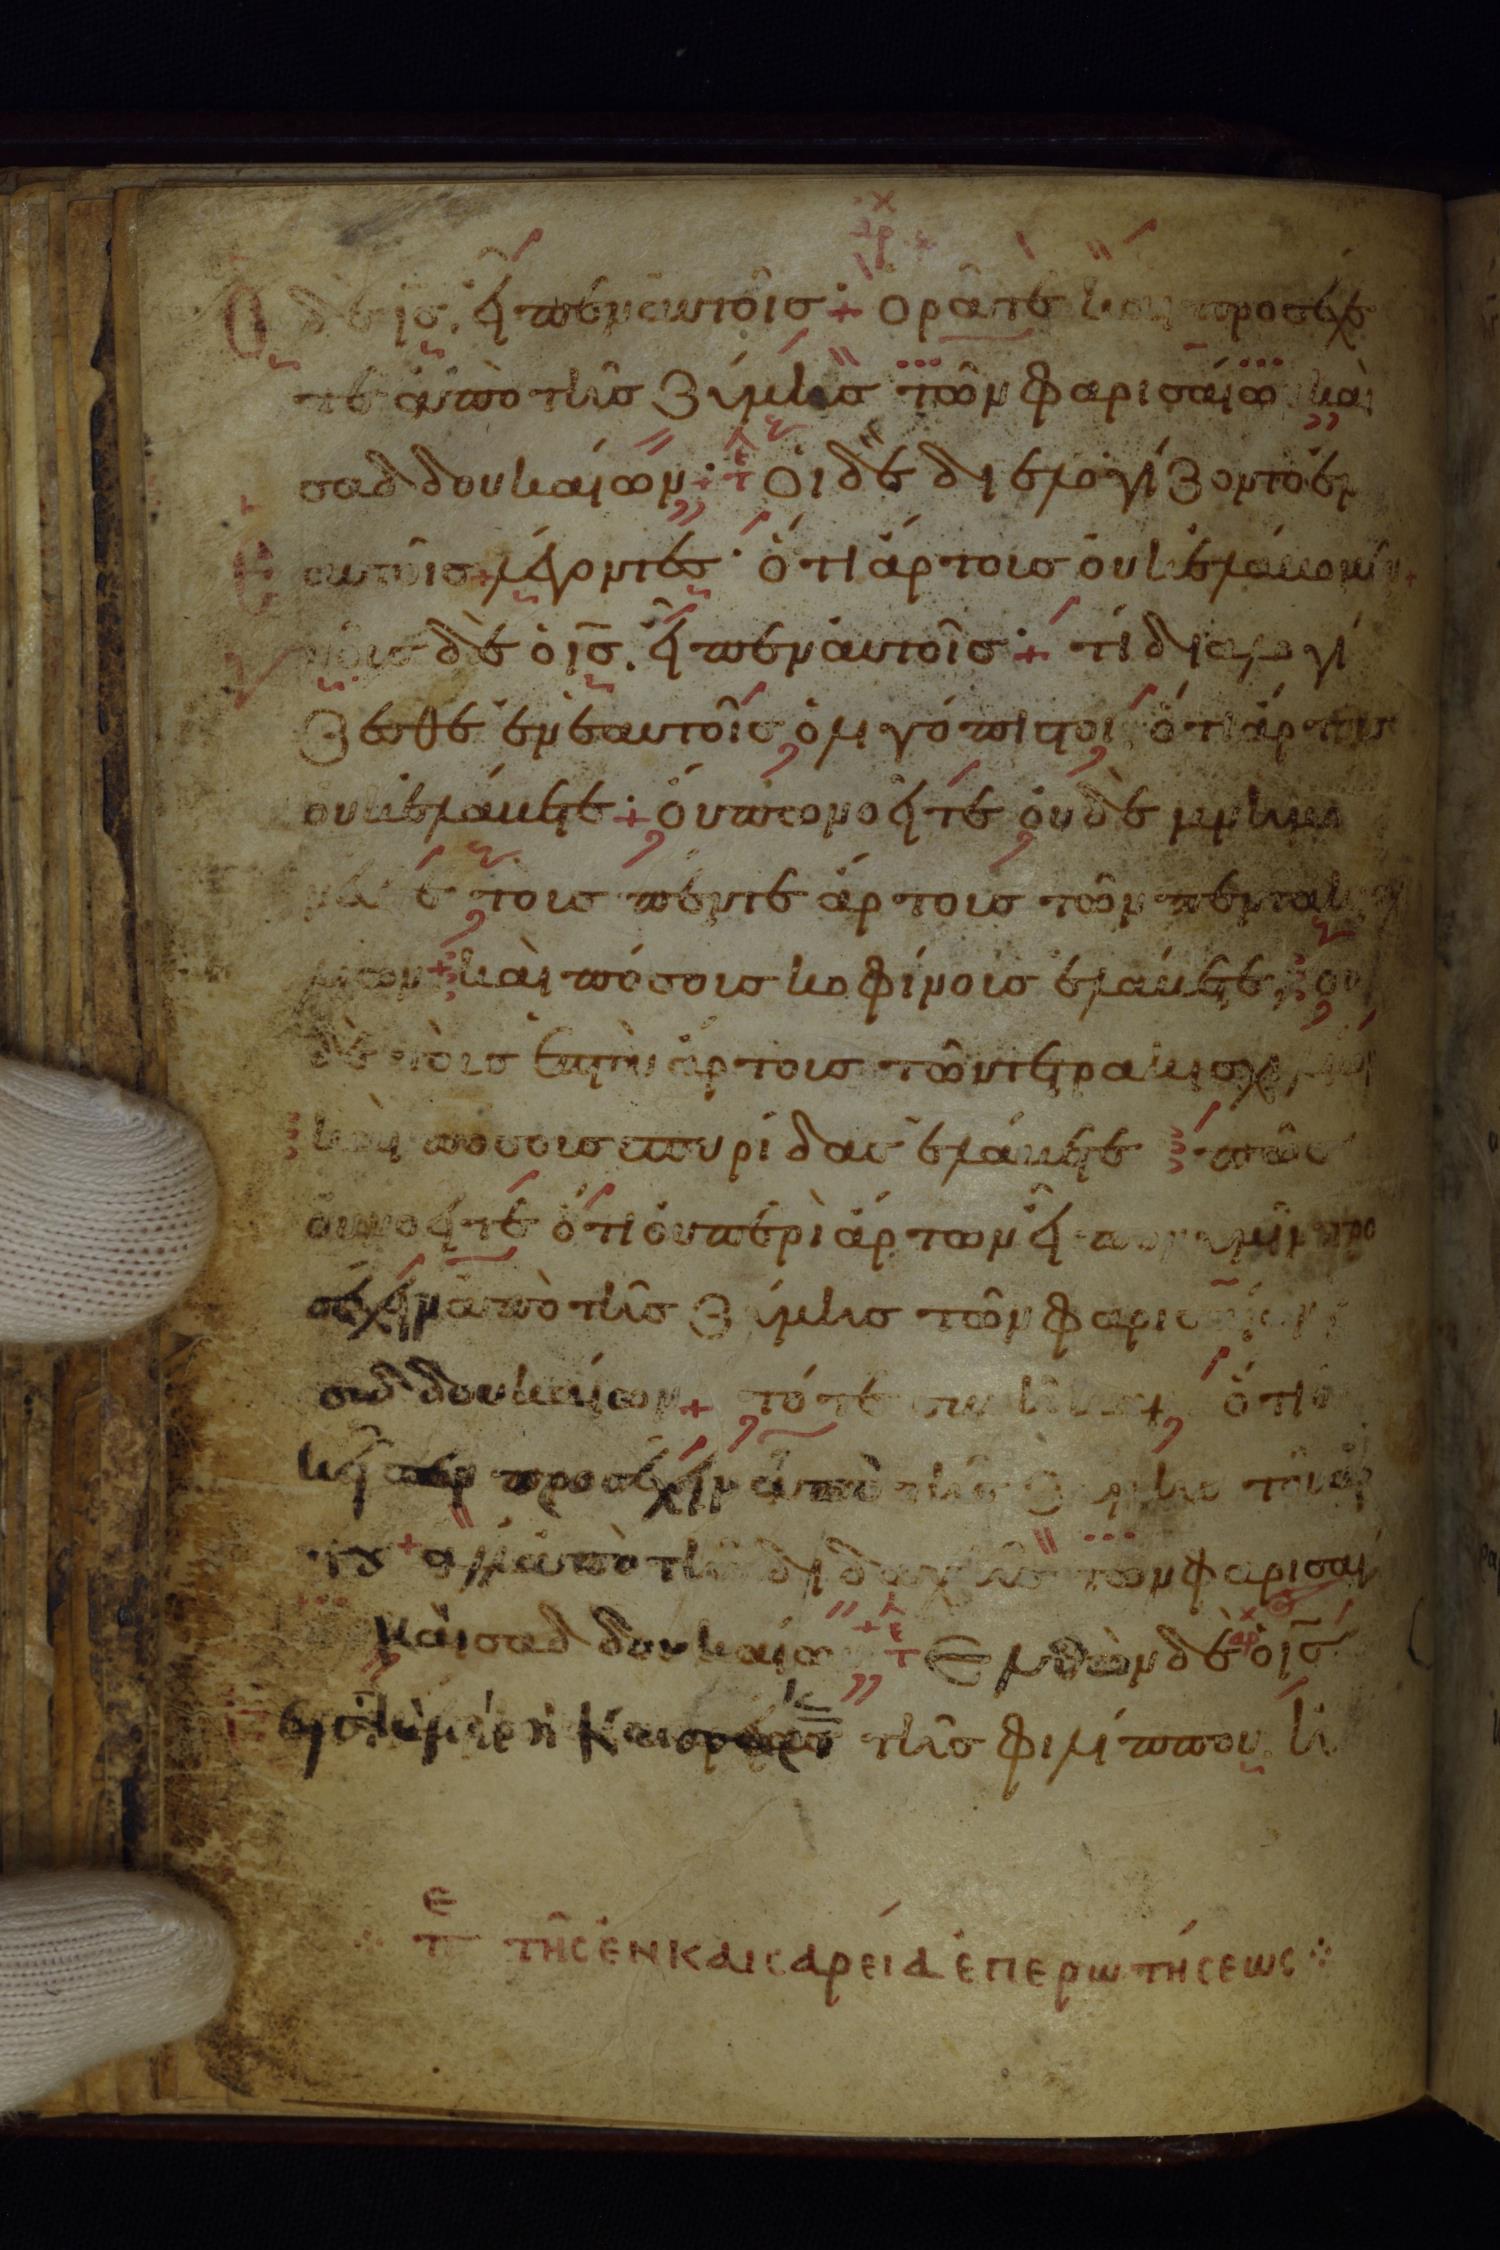 Ὁ δὲ ις̅. εἶπεν αυτοῖς ÷ ὁρᾶτε και προσέχε
τε ἀπὸ τῆς ζύμης τῶν φαρισαίω καὶ
σαδδουκαίων : οἱ δὲ διελογίζοντο ἐν
εαυτοῖς λέγοντες · ὅτι ἄρτοις ουκ ελάκομεν +
γνοις δὲ ὁ ις̅. εἶπεν αυτοῖς ÷ τί διαλογί
ζεσθε ἐν εαυτοῖς ὀλιγόπιστοι ὅτι ἄρτους
ουκ ελάκετε ÷ ὀύπω νοεῖτε ὀυδὲ μνημο
νεύετε τοις πέντε άρτοις τῶν πεντακισχι
λιων + καὶ πόσοις κοφίνοις ελάκετε, ου
δὲ τοις ἑπτὰ άρτοις τῶν τετρακισχιλιων
καὶ ποσοις σπυρίδας ελάκετε πῶς
ου νοεῖτε ὅτι ὀυ περὶ άρτων εἶπον υμῖν προ
σέχειν ἀπὸ τῆς ζύμης τῶν φαρισαίων
σαδδουκαίων + τότε συνῆκαν + ὅτι ο
κ εἶπεν προσέχειν ἀπὸ τῆς ζύμης τοῦ άρ
του + αλλ ἀπὸ τῆς διδαχῆς των φαρισαί
καὶ σαδδουκαίω + ελθὼν δὲ ὁ ις̅
εἰς τὰ μέρη Καισαρίας τῆς φιλίππου
τῆς ἐν καισαρεία ἐπερωτήσεως